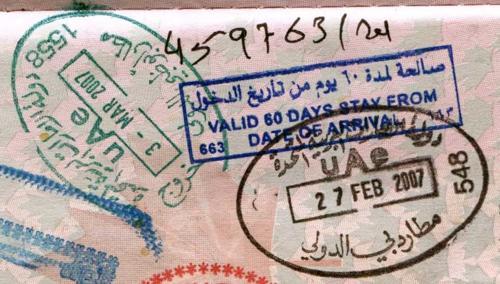 459763/
صالحة لمدة ٦٠ يوم من تاريخ الدخول
VALID 60 DAYS STAY FROM
DATE OF ARRIVAL
663
1558
UAe
3 - MAR 2007
UAe
27 FEB 2007
548
مطار دبي الدولي